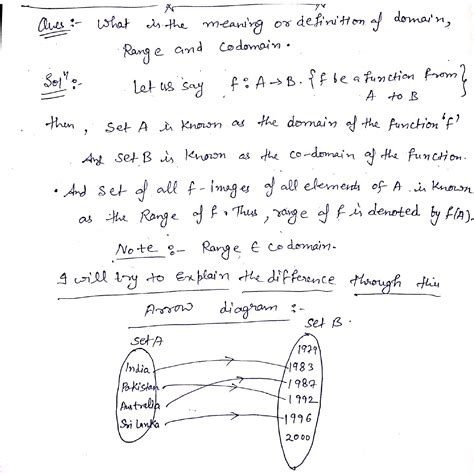 Ques :- What is the meaning or definition of domain,
Range and Codomain.
Solⁿ :- Let us say f : A → B. {f be a function from
A to B}
then, Set A is known as the domain of the function 'f'
And set B is known as the co-domain of the function.
• And set of all f-images of all elements of A is known
as the Range of f. Thus, range of f is denoted by f(A).
Note :- Range ∈ codomain.
I will try to Explain the difference through this
Arrow diagram :-
set A
set B.
India
Pakistan
Australia
Sri Lanka
1979
1983
1987
1992
1996
2000